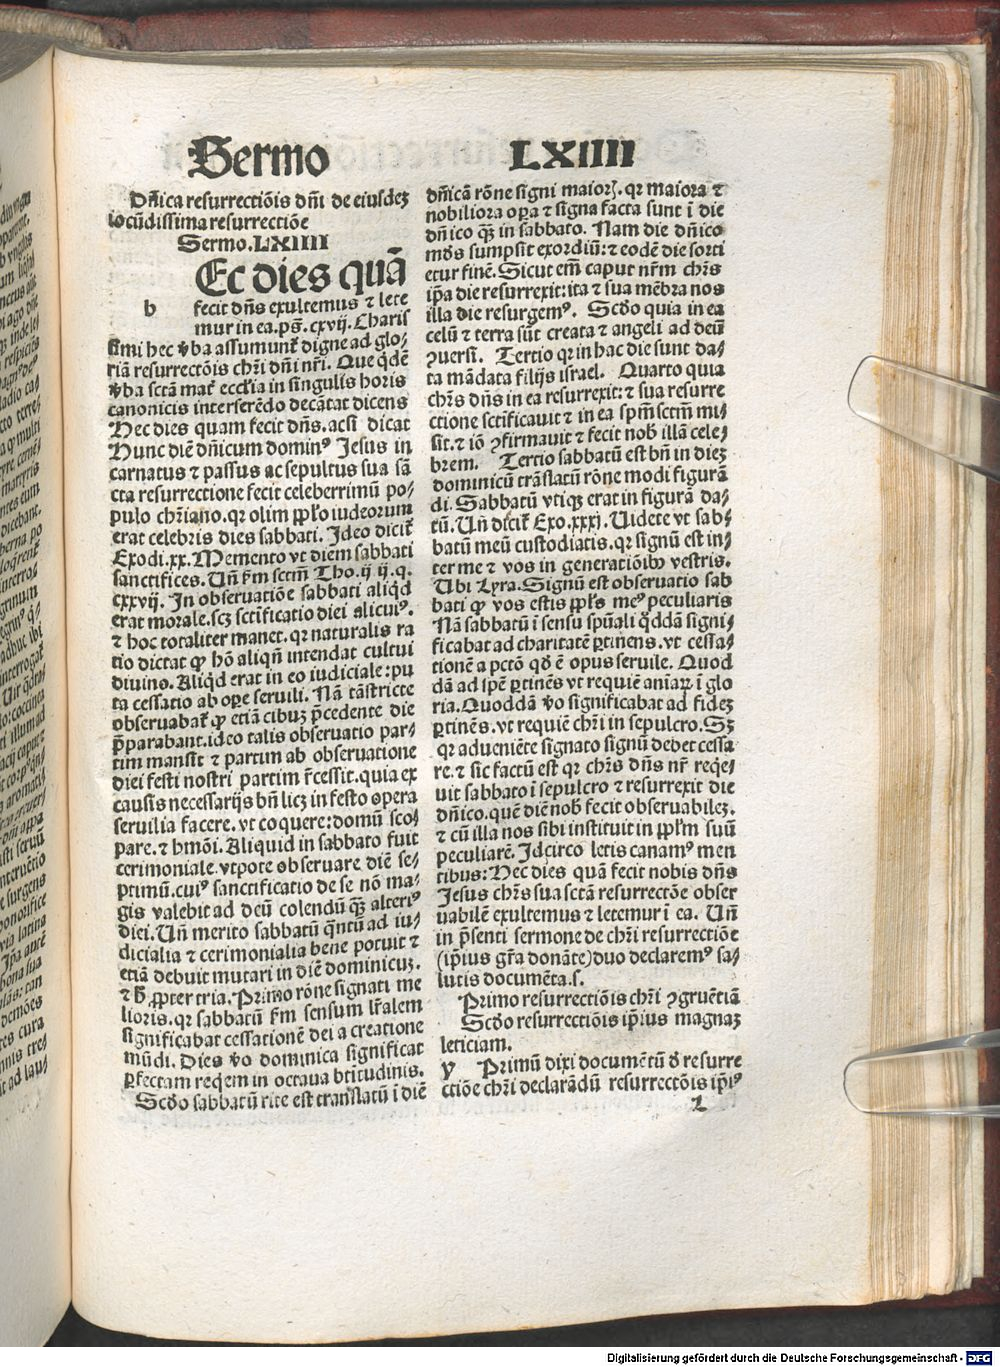 Sermo
LXIIII
Dñica resurrectiõis dñi de eiusdeȝ
locũdissima resurrectiõe
Sermo.LXIIII
Ec dies quã
h fecit dñs exultemus ⁊ lete
mur in ea.pš.cxvij.Charis
simi hec v̾ba assumunt̃ digne ad glo⸗
riã resurrectõis chr̃i dñi nr̃i. Que qd̃e
v̾ba sctã mat̃ ecclĩa in singulis horis
canonicis interserẽdo decãtat dicens
Hec dies quam fecit dñs.acsi dicat
Hunc diẽ dñicum dominꝰ Jesus in
carnatus ⁊ passus ac sepultus sua sã
cta resurrectione fecit celeberrimũ po⸗
pulo chr̃iano.qr olim ppl̃o iudeorum
erat celebris dies sabbati. Ideo dicit̃
Exodi.xx. Memento vt diem sabbati
sanctifices. Uñ f̃m sctm̃ Tho.ij ij.q.
cxxvij. In obseruatiõe sabbati aliqd̃
erat morale.scȝ sctificatio diei alicuiꝰ.
⁊ hoc totaliter manet. qr naturalis ra
tio dictat ꝙ hõ aliqñ intendat cultui
diuino. Aliqd̃ erat in eo iudiciale:pu
ta cessatio ab oꝑe seruili. Nã tã stricte
obseruabat̃ ꝙ etiã cibuȝ p̃cedente die
p̃parabant.ideo talis obseruatio par⸗
tim mansit ⁊ partim ab obseruatione
diei festi nostri partim r̃cessit.quia ex
causis necessarijs bñ licȝ in festo opera
seruilia facere. vt coquere:domũ sco⸗
pare. ⁊ hmõi. Aliquid in sabbato fuit
cerimoniale.vtpote obseruare diẽ se⸗
ptimũ.cuiꝰ sanctificatio de se nõ ma⸗
gis valebit ad deũ colendũ qȝ̃ alteriꝰ
diei. Uñ merito sabbatũ qñtũ ad iu⸗
dicialia ⁊ cerimonialia bene potuit ⁊
etiã debuit mutari in diẽ dominicuȝ.
⁊ h̃ ꝓpter tria. Primo rõne signati me
lioris.qr sabbatũ f̃m sensum lr̃alem
significabat cessationẽ dei a creatione
mũdi. Dies v̾o dominica significat
ꝑfectam reqẽm in octaua btĩtudinis.
Scd̾o sabbatũ rite est translatũ ĩ diẽ
dñicã rõne signi maioꝝ. qr maiora ⁊
nobiliora oꝑa ⁊ signa facta sunt ĩ die
dñico qȝ̃ in sabbato. Nam die dñico
mũdus sumpsit exordiũ: ⁊ eodẽ die sorti
etur finẽ. Sicut em̃ caput nr̃m chr̃s
ip̃a die resurrexit:ita ⁊ sua mẽbra nos
illa die resurgemꝰ. Scd̾o quia in ea
celũ ⁊ terra sũt creata ⁊ angeli ad deũ
ꝯuersi. Tertio qr in hac die sunt da⸗
ta mãdata filijs israel. Quarto quia
chr̃s dñs in ea resurrexit: ⁊ sua resurre
ctione sctificauit ⁊ in ea spm̃ sctm̃ mi⸗
sit.⁊ iõ ꝯfirmauit ⁊ fecit nob̃ illã cele⸗
brem. Tertio sabbatũ est bñ in dieȝ
dominicũ trãslatũ rõne modi figurã
di. Sabbatũ vtiqȝ erat in figurã da⸗
tũ. Uñ dicit̃ Exo.xxxj. Uidete vt sab⸗
batũ meũ custodiatis.qr signũ est in⸗
ter me ⁊ vos in generatiõibꝰ vestris.
Ubi Lyra. Signũ est obseruatio sab
bati ꝙ vos estis ppl̃s meꝰ peculiaris
Nã sabbatũ ĩ sensu spũali qd̃dã signi⸗
ficabat ad charitatẽ ꝑtinens.vt cessa⸗
tionẽ a pctõ qd̾ ẽ opus seruile. Quod
dã ad spẽ ꝑtinẽs vt requiẽ aĩaꝝ ĩ glo
ria. Quoddã v̾o significabat ad fideȝ
ꝑtinẽs. vt requiẽ chr̃i in sepulcro. Sȝ
qr adueniẽte signato signũ debet cessa
re. ⁊ sic factũ est qr chr̃s dñs nr̃ reqẽ⸗
uit sabbato ĩ sepulcro ⁊ resurrexit die
dñico. quẽ diẽ nob̃ fecit obseruabileȝ.
⁊ cũ illa nos sibi instituit in ppl̃m suũ
peculiarẽ. Idcirco letis canamꝰ men
tibus: Hec dies quã fecit nobis dñs
Jesus chr̃s sua sctã resurrectõe obser
uabilẽ exultemus ⁊ letemur ĩ ea. Uñ
in p̃senti sermone de chr̃i resurrectiõe
(ip̃ius gr̃a donãte) duo declaremꝰ sa⸗
lutis documẽta.s.
Primo resurrectiõis chr̃i ꝯgruẽtiã
Scd̾o resurrectiõis ip̃ius magnaȝ
leticiam.
y Primũ dixi documẽtũ d̾ resurre
ctiõe chr̃i declarãdũ resurrectõis ip̃iꝰ
Digitalisierung gefördert durch die Deutsche Forschungsgemeinschaft - DFG